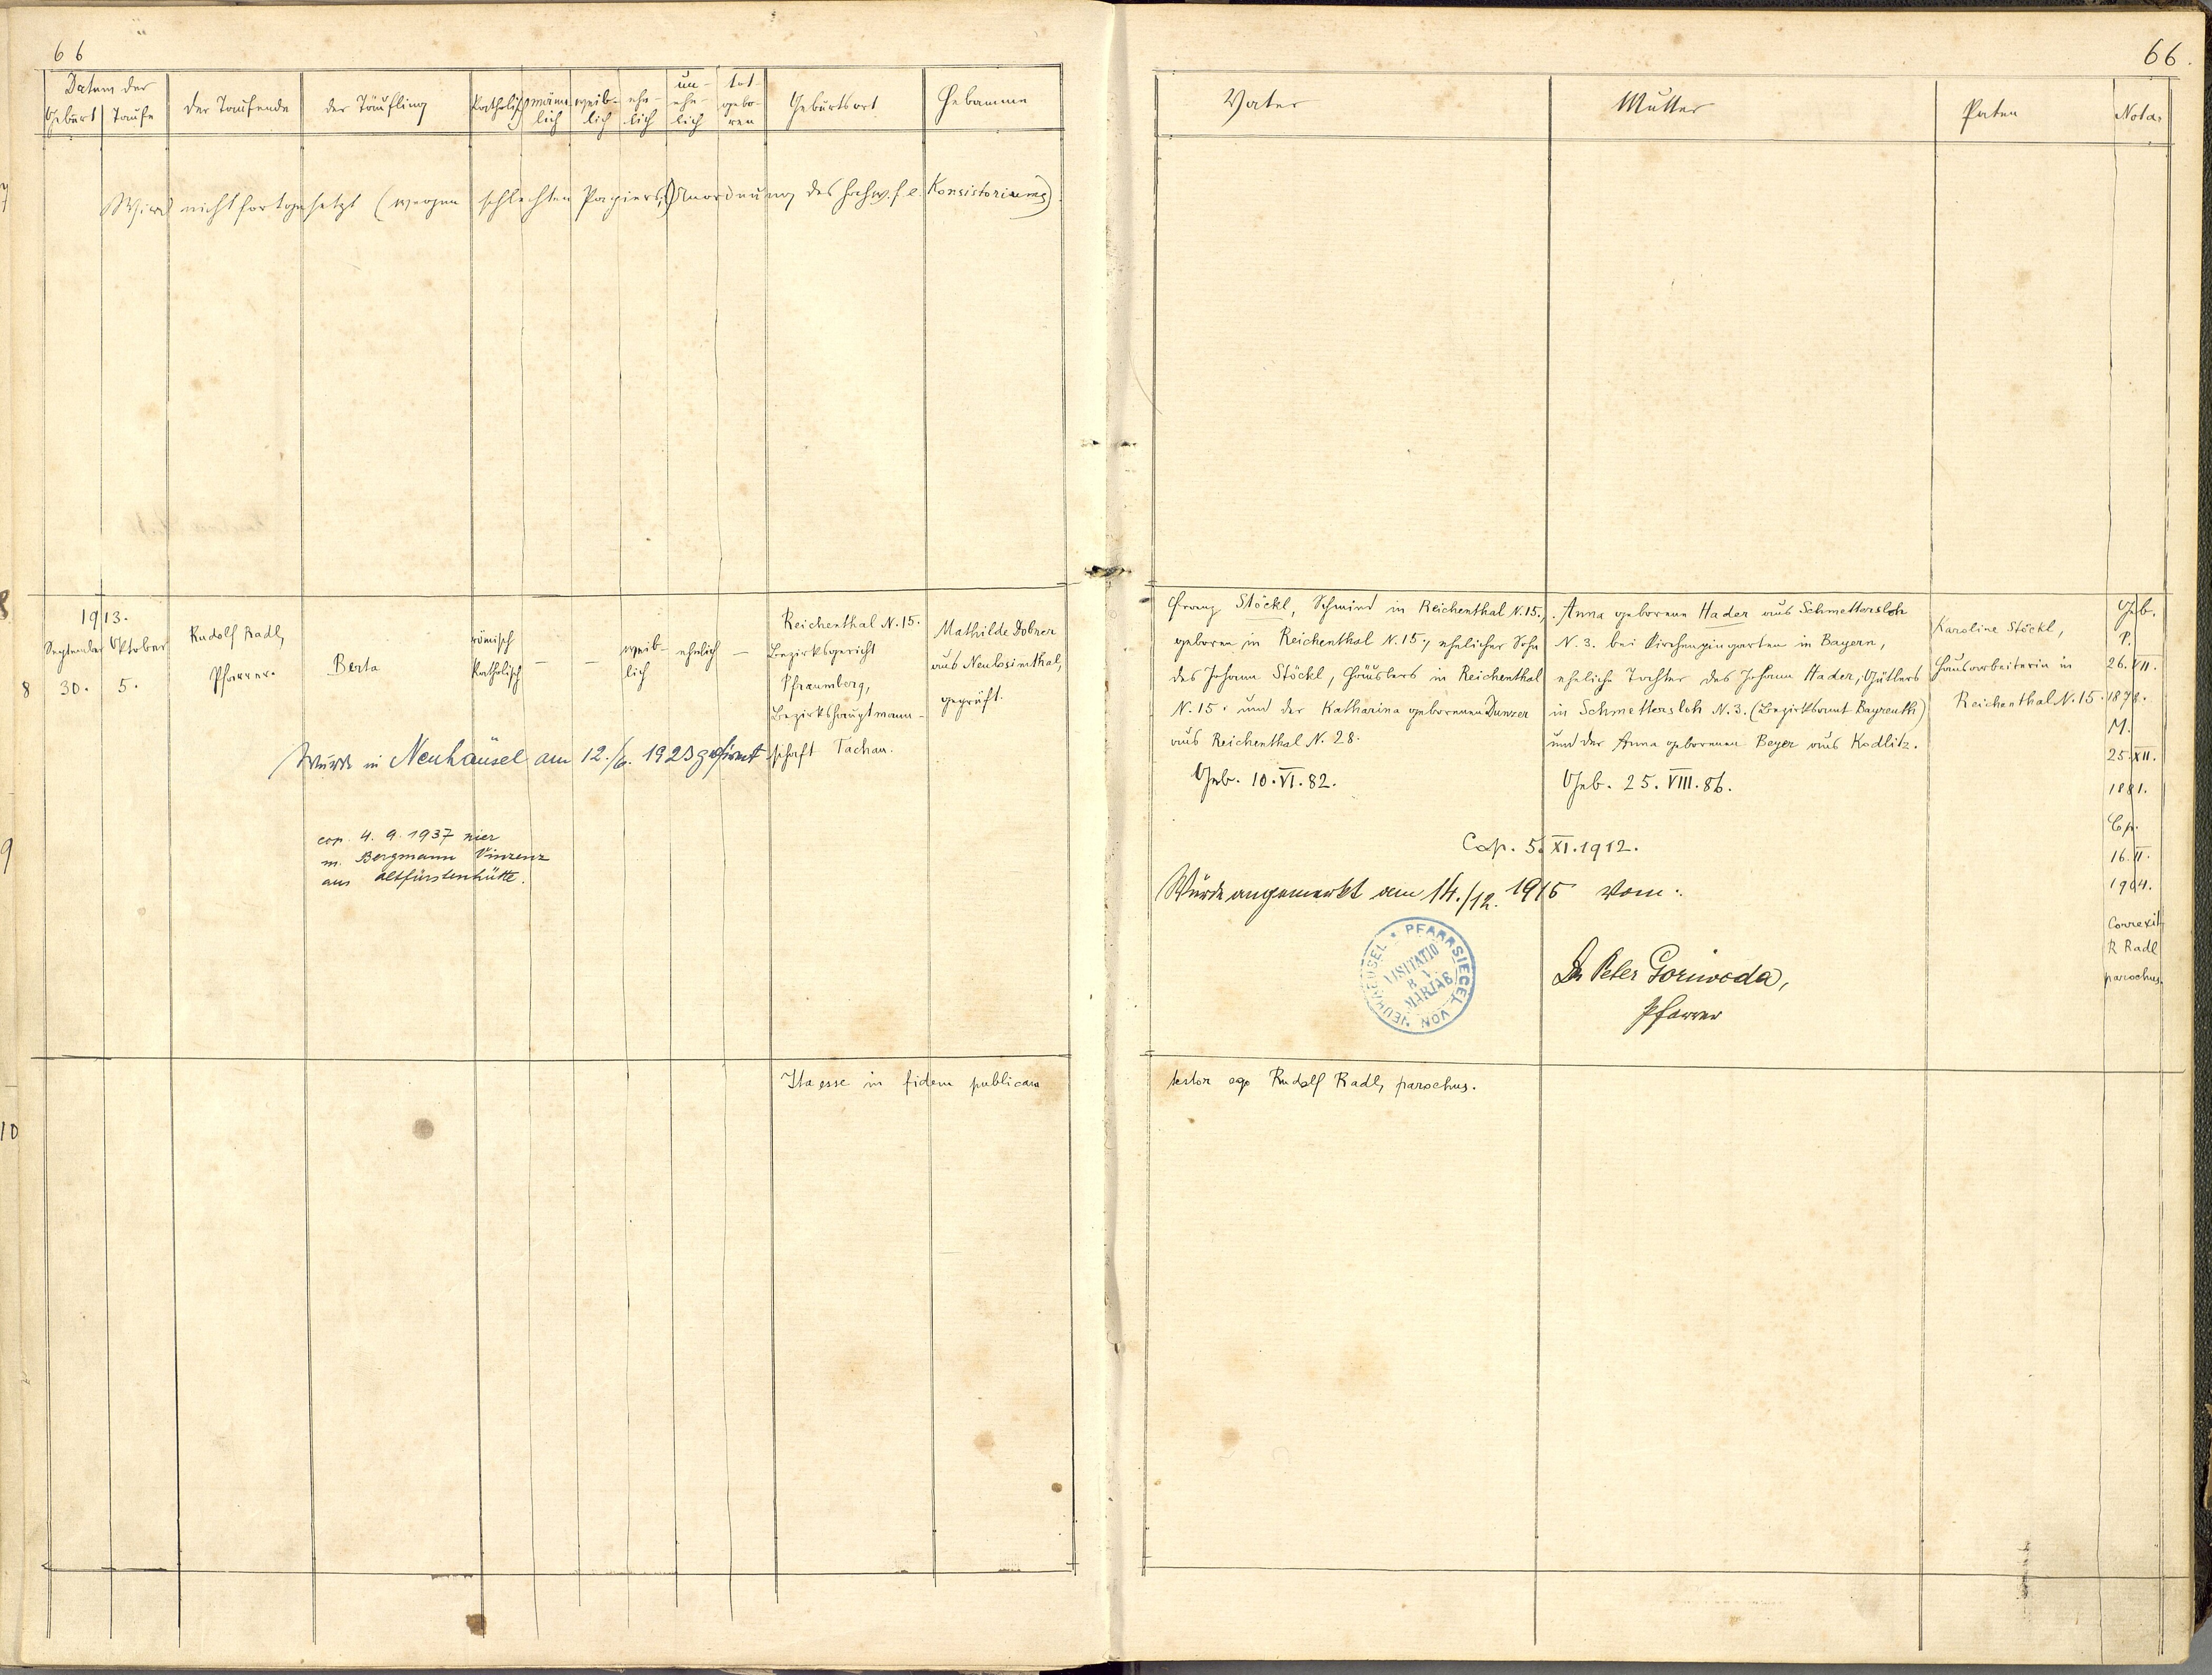 66
66.
Datum der
Geburt Taufe
der Taufende
der Täufling
Katholisch
männ-
lich
weib-
lich
ehe-
lich
un-
ehe-
lich
tot-
gebo-
ren
Geburtsort
Hebamme
Vater
Mutter
Paten
Nota.
7
Wird nicht fortgesetzt (wegen schlechten Papiers, Anordnung des hochw. f. e. Konsistoriums)
8
1913.
September Oktober
8 30. 5.
Rudolf Radl,
Pfarrer.
Berta
römisch
Katholisch
— —
weib-
lich
ehelich
—
Reichenthal N. 15.
Bezirksgericht
Pfraumberg,
Bezirkshauptmann-
schaft Tachau.
Mathilde Dobner
aus Neulosimthal,
geprüft.
Wurde in Neuhäusel am 12./6. 1923 gefirmt
cop. 4. 9. 1937 hier
m. Bergmann Vinzenz
aus Altfürstenhütte.
9
10
Franz Stöckl, Schmied in Reichenthal N. 15.,
geboren in Reichenthal N. 15., ehelicher Sohn
des Johann Stöckl, Häuslers in Reichenthal
N. 15. und der Katharina geborenen Dunzer
aus Reichenthal N. 28.
Geb. 10. VI. 82.
Anna geborene Hader aus Schmettersloh
N. 3. bei Kirchenpingarten in Bayern,
eheliche Tochter des Johann Hader, Gütlers
in Schmettersloh N. 3. (Bezirksamt Bayreuth)
und der Anna geborenen Beyer aus Kodlitz.
Geb. 25. VIII. 86.
Karoline Stöckl,
Hausarbeiterin in
Reichenthal N. 15.
Geb.
P.
26. VII.
1878.
M.
25. XII.
1881.
Cp.
16. II.
1904.
Correxit
R Radl
parochus.
Cop. 5. XI. 1912.
Wurde angemerkt am 14./12. 1915 vom:
PFARRSIEGEL VON NEUHAEUSEL
VISITATIO
B. V.
MARIAE
Dr Peter Goriwoda,
Pfarrer
Ita esse in fidem publicam
testor ego Rudolf Radl, parochus.